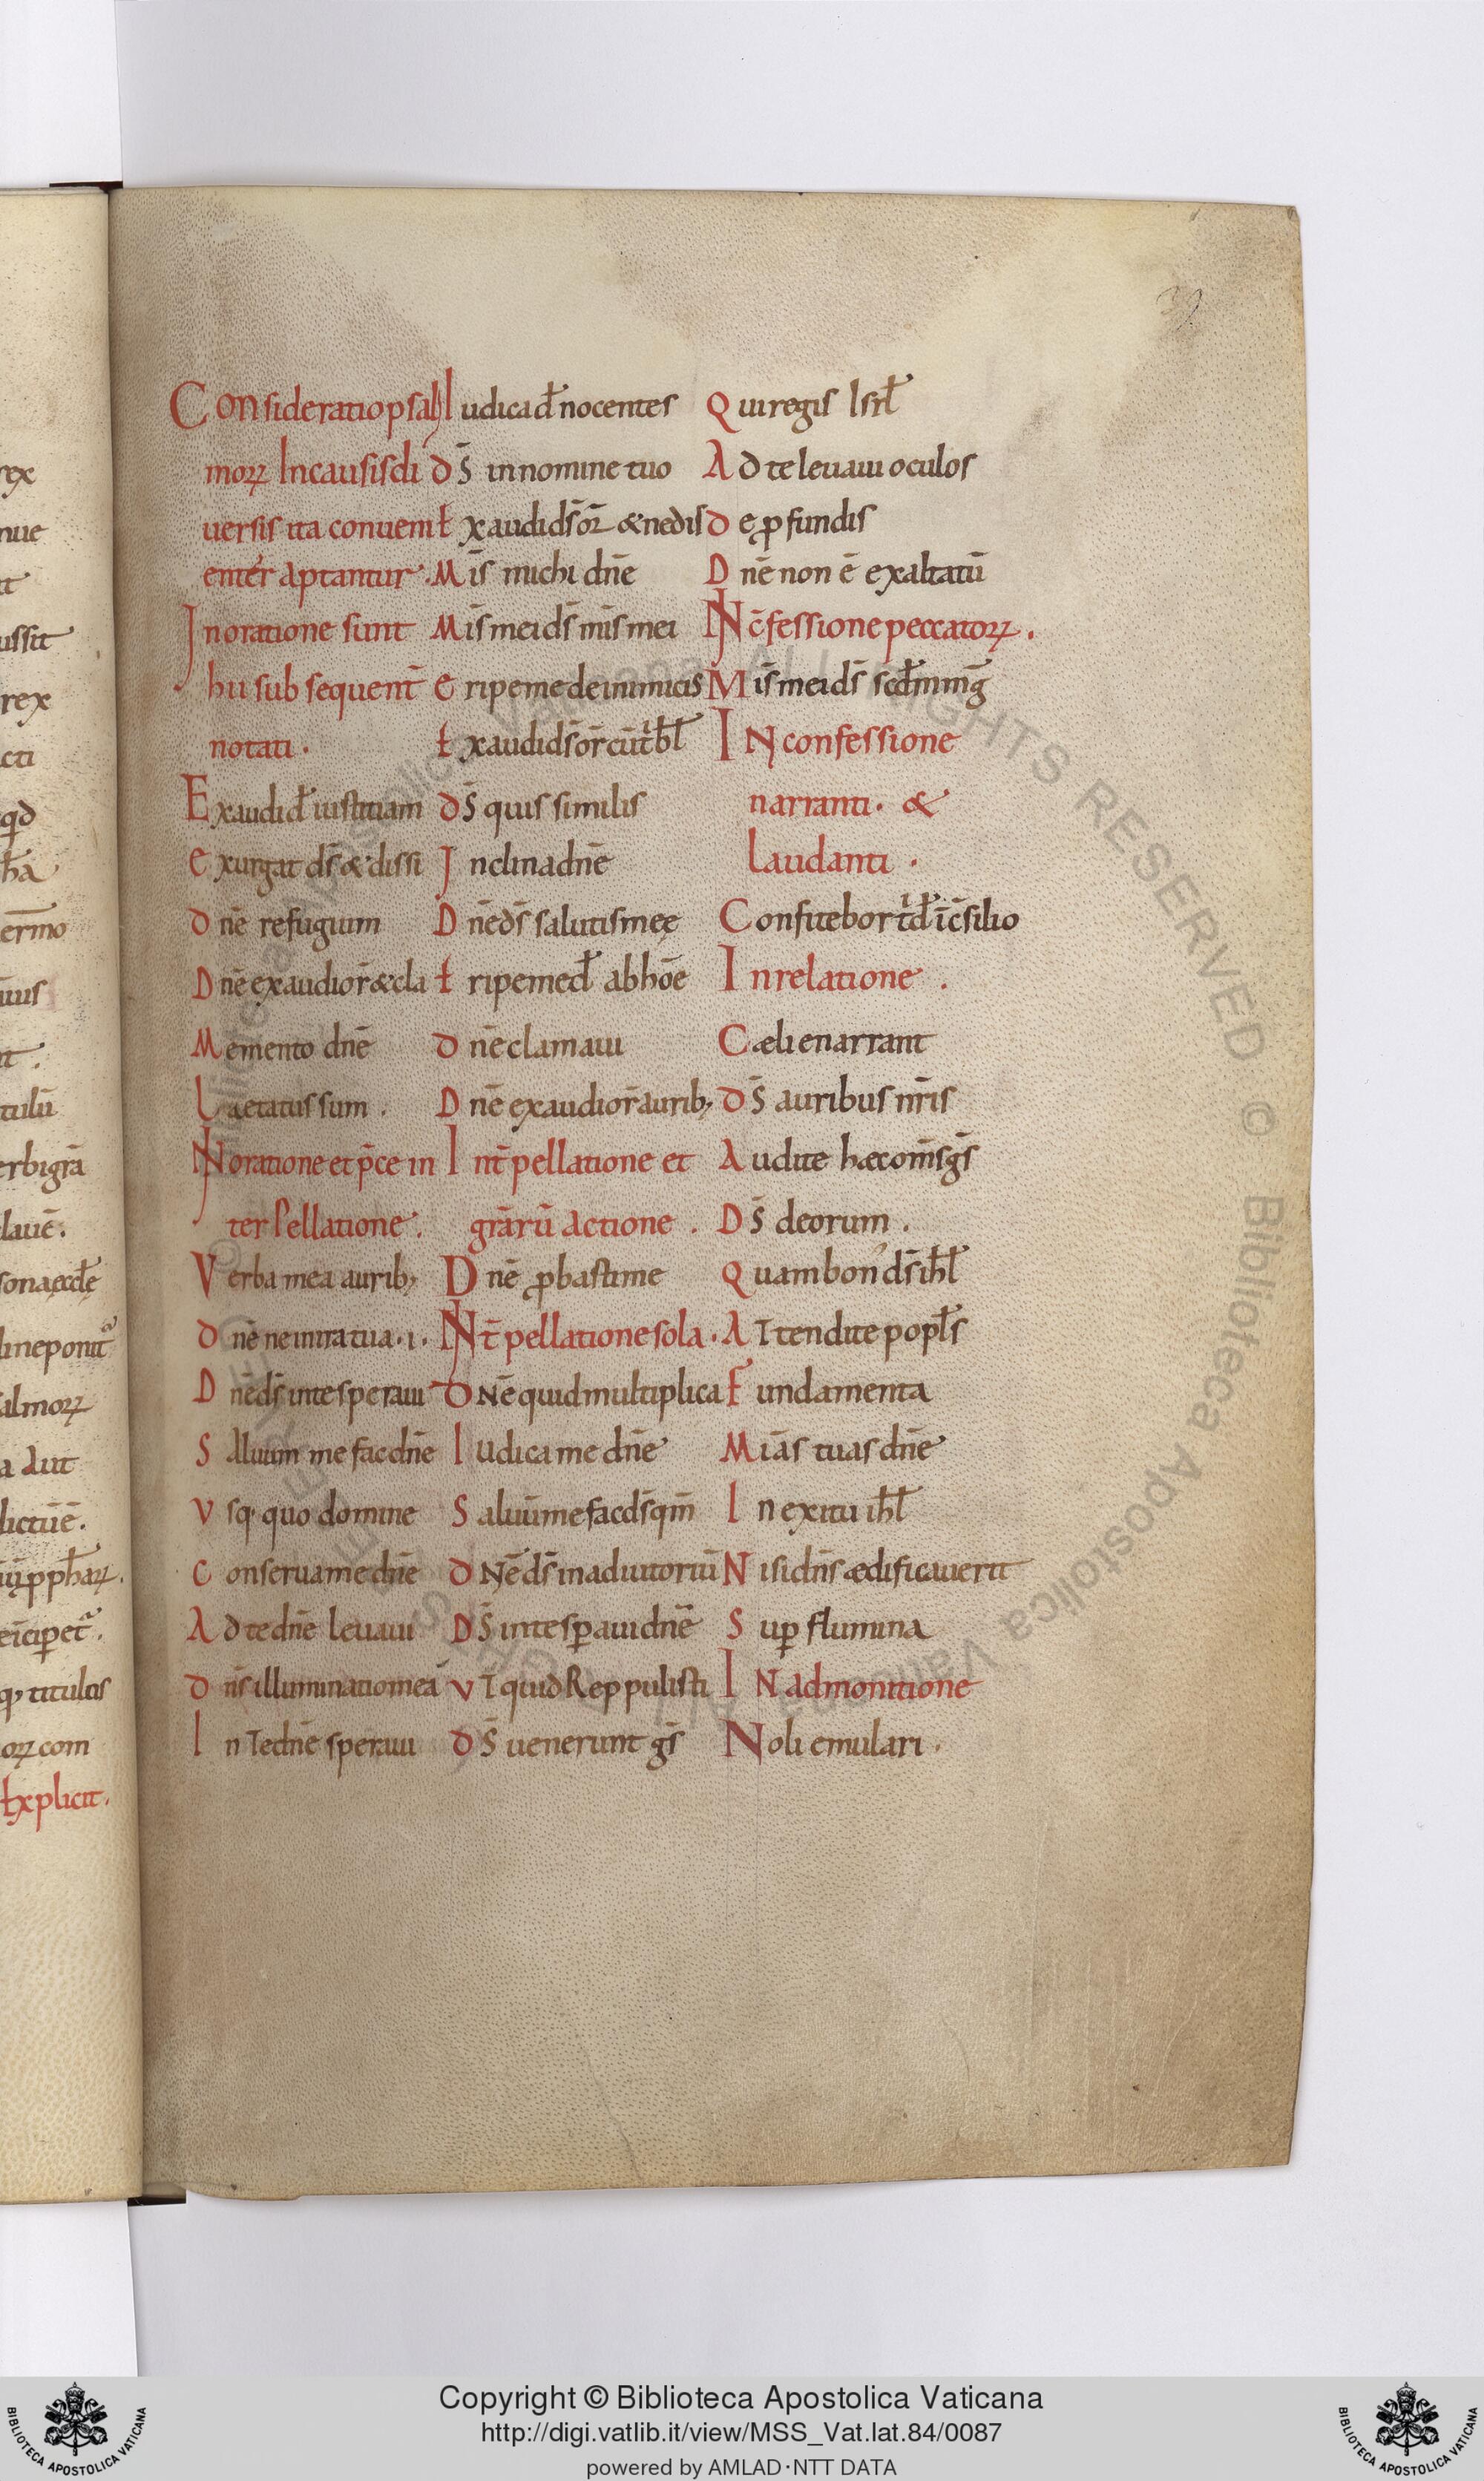 39
Consideratio psal
morꝝ In causis di
uersis ita conueni
enter aptantur.
In oratione sunt
hii subsequent̄
notati.
Exaudi dꝰ iustitiam
exurgat ds̄ & dissi
dnē refugium
Dnē exaudi or̄ & cla
Memento dnē
Laetatus sum.
IN oratione et p̄ce in
terpellatione.
Verba mea aurib;
dnē ne in ira tua. i.
Dnē ds̄ in te speraui
Saluum me fac dnē
Vsq; quo domine
Conserua me dnē
Ad te dnē leuaui
dn̄s illuminatio mea
In te dnē speraui
Iudica dꝰ nocentes
dS̄ in nomine tuo
Exaudi ds̄ or̄ & ne dis
Mis̄ michi dnē
Mis̄ mei ds̄ mis̄ mei
eripe me de inimicis
Exaudi ds̄ or̄ cū tꝰbł
dS̄ quis similis
Inclina dnē
Dnē ds̄ salutis meę
Eripe me dꝰ ab hoē
dnē clamaui
Dnē exaudi or̄ aurib;
Int̄pellatione et
grārū actione.
Dnē ꝓbasti me
INt̄pellatione sola.
dNē quid multiplica
Iudica me dnē
Saluū me fac ds̄ qm̄
dNē ds̄ in adiutoriū
DS̄ in te sꝑaui dnē
VT quid Reppulisti
dS̄ uenerunt gs̄
Qui regis Isrł
Ad te leuaui oculos
de ꝓfundis
Dnē non ē exaltatū
IN c̄fessione peccatorꝝ.
Mis̄ mei ds̄ scd̄m mḡ
IN confessione
narranti. &
laudanti.
Confitebor t dꝰ ī c̄silio
In relatione.
Cæli enarrant
dS̄ auribus nr̄is
Audite hæc om̄s gs̄
DS̄ deorum.
Quam bon' ds̄ ihł
ATtendite popłs
Fundamenta
Miās tuas dnē
In exitu ihł
Nisi dn̄s ædificauerit
Suꝑ flumina
IN admonitione
Noli emulari.
Explicit.
Copyright © Biblioteca Apostolica Vaticana
http://digi.vatlib.it/view/MSS_Vat.lat.84/0087
powered by AMLAD·NTT DATA